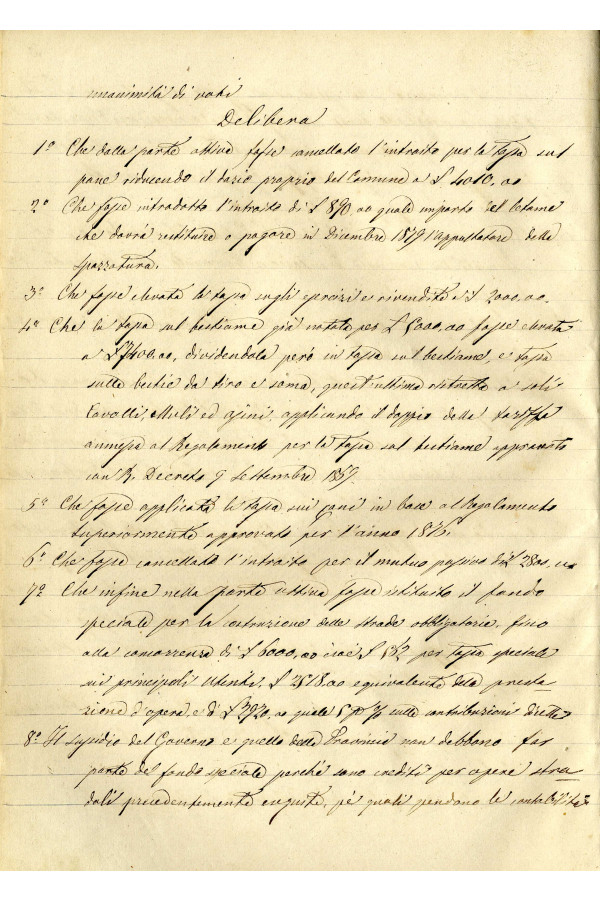 unanimità di voti
Delibera
1º Che dalla parte attiva fosse cancellato l'introito per la tassa sul
pane riducendo il dazio proprio del Comune a £ 4010,00
2º Che fosse introdotto l'introito di £ 890,00 quale importo del letame
che dovrà restituire o pagare in Dicembre 1879 l'appaltatore della
spazzatura.
3º Che fosse elevata la tassa sugli esercizi e rivendite a £ 2000,00.
4º Che la tassa sul bestiame già notata per £ 5000,00 fosse elevata
a £ 7400,00, dividendola però in tassa sul bestiame, e tassa
sulle bestie da tiro e soma, quest'ultima ristretta a soli
Cavalli, Muli ed asini, applicando il doppio della tariffa
annessa al Regolamento per la tassa sul bestiame approvato
con R. Decreto 9 Settembre
5º Che fosse applicata la tassa sui cani in base al Regolamento
superiormente approvato per l'anno 1876.
6º Che fosse cancellato l'introito per il mutuo passivo di £ 2800,00
7º Che infine nella parte attiva fosse istituito il fondo
speciale per la costruzione delle strade obbligatorie, fino
alla concorrenza di £ 6000,00 cioè £ per tassa speciale
sui principali utenti, £ 2518,00 equivalente della presta-
zione d'opera e di £ quale 5 p % sulle contribuzioni dirette
8º Il sussidio del Governo e quello della Provincia non debbono far
parte del fondo speciale perchè sono crediti per opere stra-
dali precedentemente eseguite, pe' quali pendono le contabilità